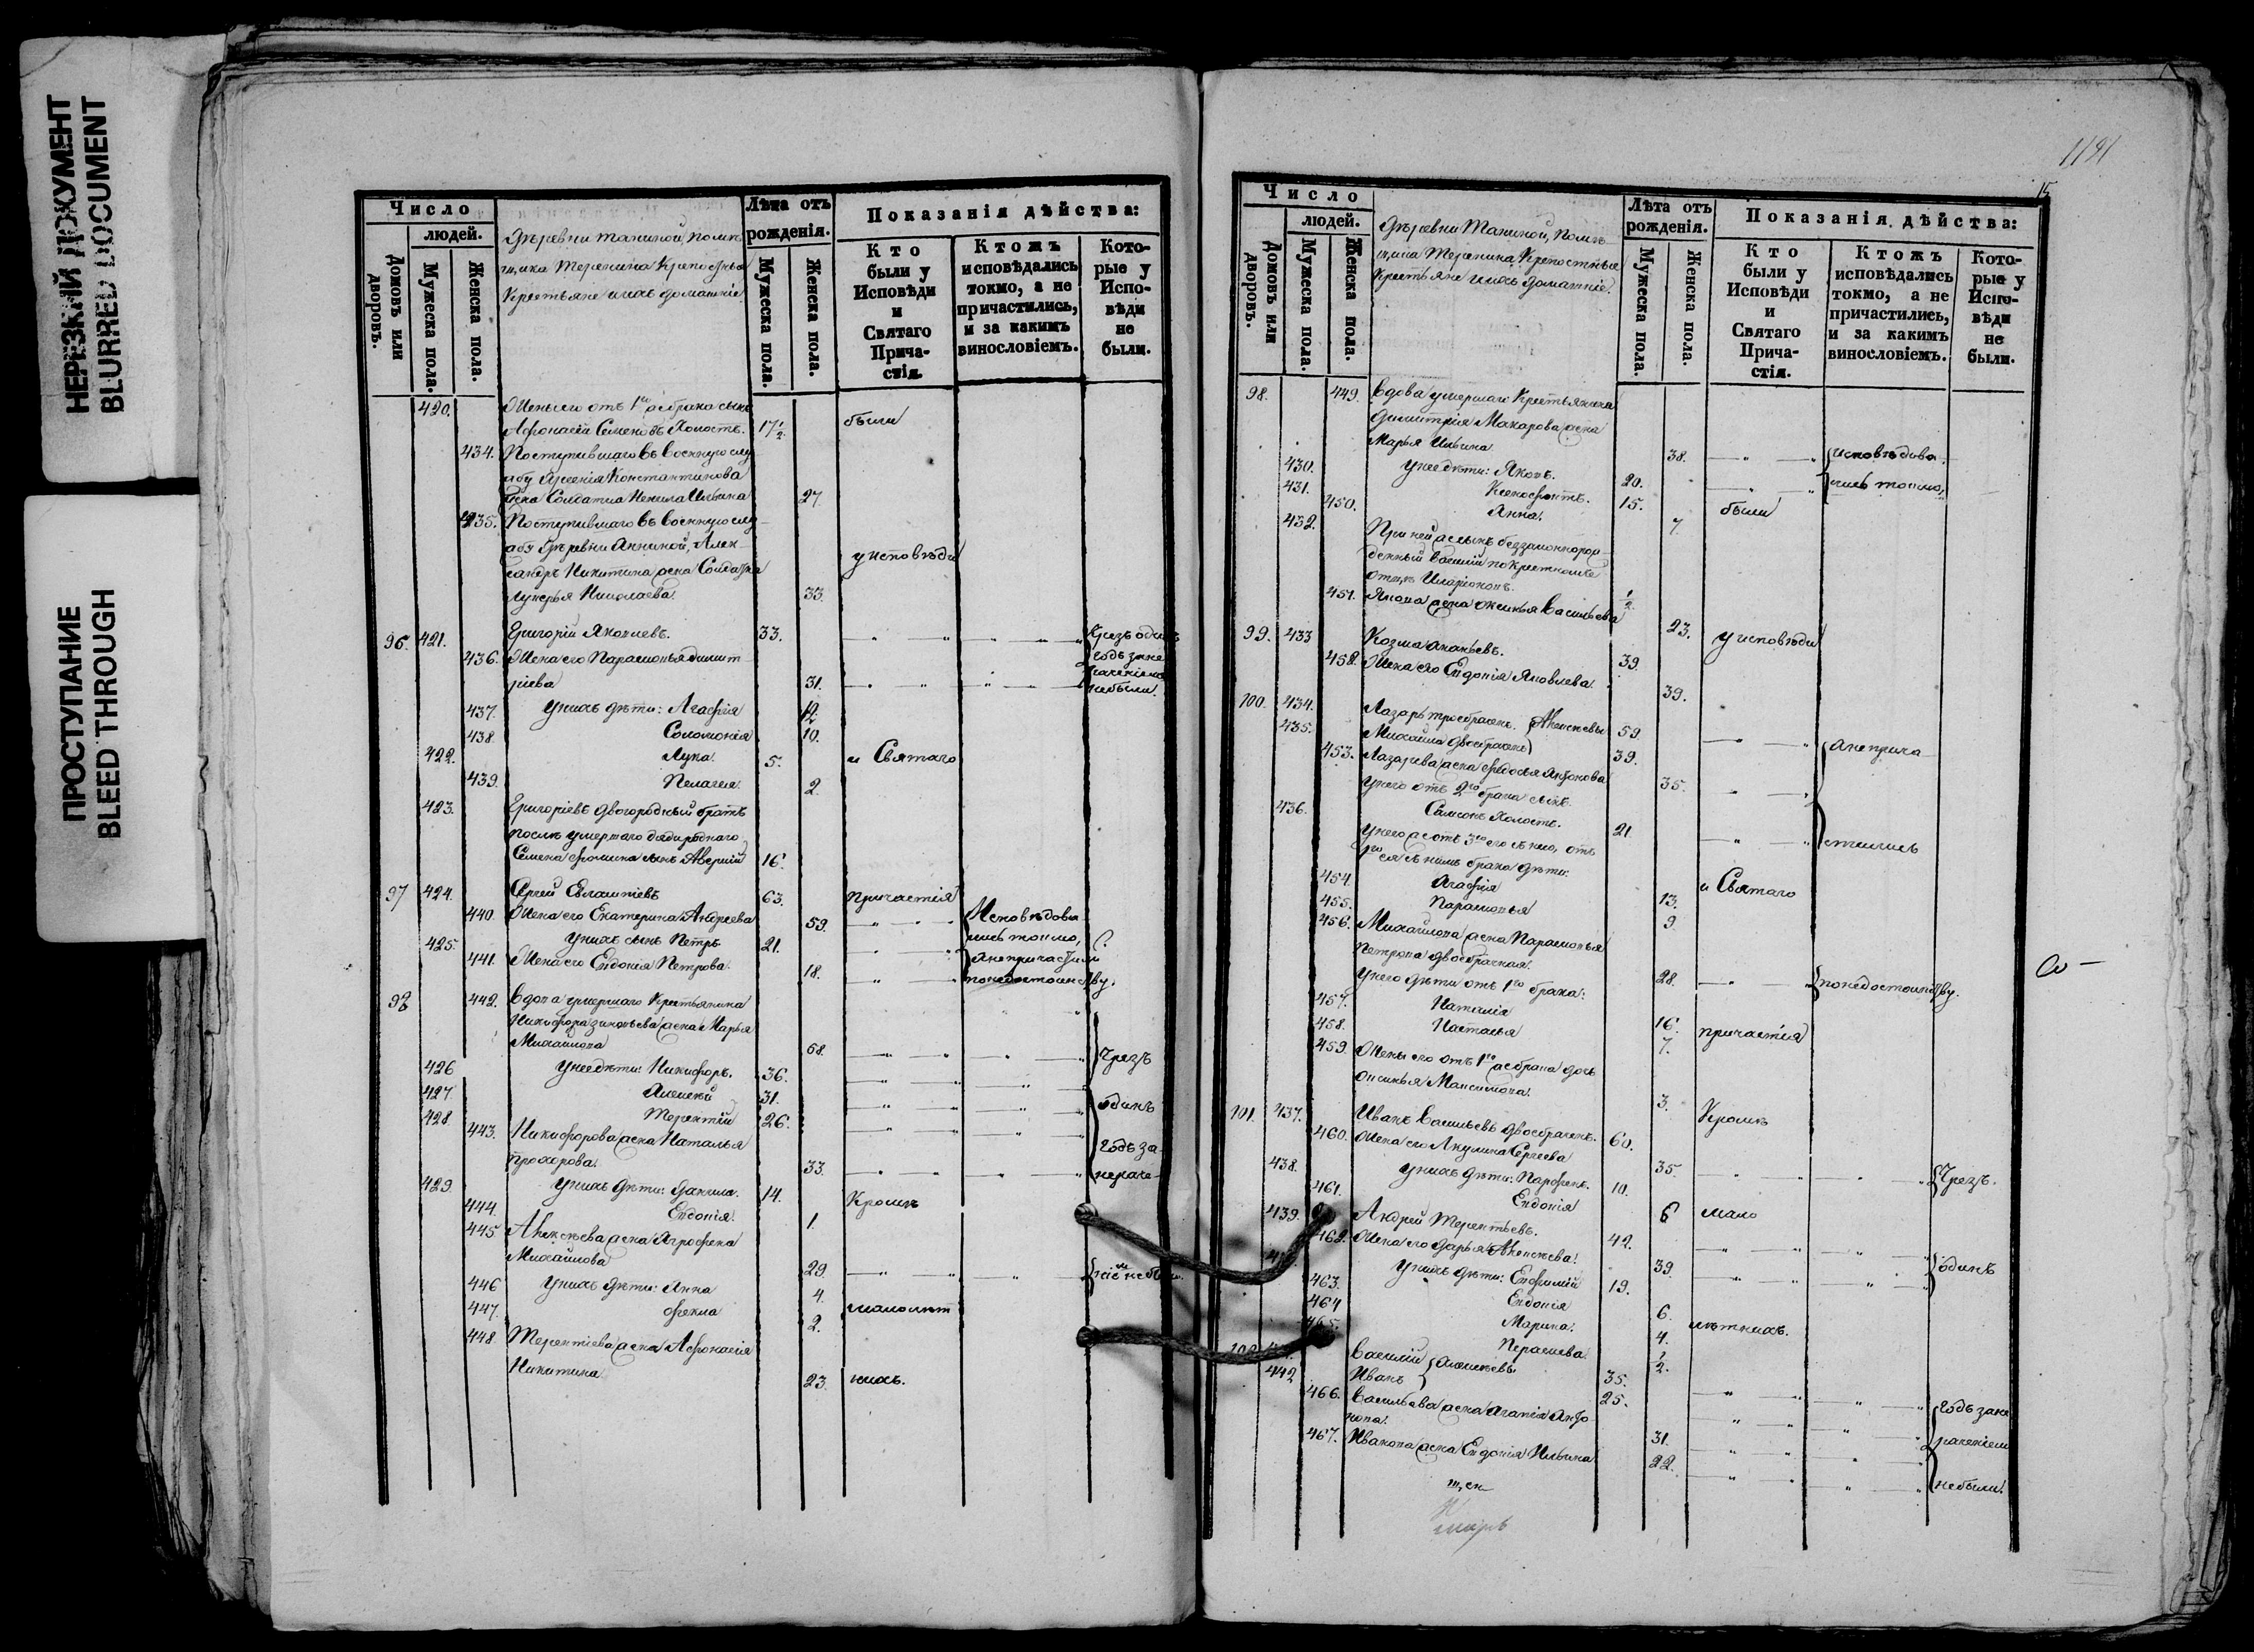 НЕРЕЗКИЙ ДОКУМЕНТ
BLURRED DOCUMENT
ПРОСТУПАНИЕ
BLEED THROUGH
Число
людей.
Домовъ или дворовъ.
Мужеска пола.
Женска пола.
Деревни Таниной, помѣ-
щика Теренина Крепостные
Крестьяне ихъ домашніе
Лѣта отъ рожденія.
Мужеска пола.
Женска пола.
Показанія дѣйства:
Кто были у Исповѣди и Святаго Прича-стія.
Ктожъ исповѣдались токмо, а не причастились, и за какимъ винословіемъ.
Кото-рые у Испо-вѣди не были.
420. Жены его отъ 1го брака сынъ
Афонасій Семеновъ Холостъ. 17 1/2 были
434. Поступившаго въ военную слу
жбу Арсенія Константинова
жена Солдатка Ненила Ильина 27
435. Поступившаго въ военную слу-
жбу деревни Анниной, Алек-
сандръ Никитина жена Солдатка у исповѣди
Лукерья Николаева. 33.
96. 421. Григорій Яковлевъ. 33. Чрезъ одинъ
436. Жена его Парасковья Димит- годъ зане
ріева 31. небыли.
437. У нихъ дѣти: Агафія 12
438. Соломонія 10.
422. Лука. 5. и Святаго
439. Пелагея. 2.
423. Григоріевъ двогородный братъ
послѣ умершаго дяди роднаго
Семена Фомина сынъ Аверкій 16.
97 424. Сергей Евлампіевъ 63. причастія
440. Жена его Екатерина Андреева 59. Исповѣдова
425. У нихъ сынъ Петръ 21. лись токмо,
441. Жена его Евдокія Петрова. 18. понедостоинству.
98 442. Вдова умершаго Крестьянина
Никифора Зиновьева жена Марья
Михайлова 68. Чрезъ
426 У нее дѣти: Никифоръ. 36.
427. Алексѣй 31. одинъ
428. Терентій 26.
443. Никифорова жена Наталья годъ за
Прохорова. 33. нераче-
429. У нихъ дѣти: Данила. 14. Кромѣ
444. Евдокія. 1.
445. Алексѣева жена Агрофена
Михайлова 29. ніем небыли.
446 У нихъ дѣти: Анна 4.
447. Фекла 2. малолѣт
448. Терентіева жена Афонасія
Никитина 23. нихъ.
1191
15
Число
людей.
Домовъ или дворовъ.
Мужеска пола.
Женска пола.
Деревни Таниной, помѣ-
щика Теренина Крепостные
Крестьяне ихъ домашніе.
Лѣта отъ рожденія.
Мужеска пола.
Женска пола.
Показанія дѣйства:
Кто были у Исповѣди и Святаго Прича-стія.
Ктожъ исповѣдались токмо, а не причастились, и за какимъ винословіемъ.
Кото-рые у Испо-вѣди не были.
98. 449. Вдова умершаго Крестьянина
Димитрія Макарова жена
Марья Ильина 38. исповѣдова-
430. У нее дѣти: Яковъ. 20. лись токмо,
431. Ксенофонтъ. 15. были
450. Анна. 7
432. При ней же сынъ беззаконнорож-
денный Василій по крестному
отцѣ Иларіоновъ. 1/2
451. Якова жена Аксинья Васильева 23.
99. 433 Козма Ананьевъ. 39. у исповѣди
452. Жена его Евдокія Яковлева. 39.
100. 434. Лазарь троебраченъ. } Алексѣевы 59
435. Михайла двоебраченъ 39. анеприча
453. Лазарева жена Федосья Антонова 35.
У него отъ 2го брака сынъ.
436. Самсонъ Холостъ. 21. стились
У него же отъ 3го его съ нею, отъ
1го ея съ нимъ брака дѣти:
454. Агафія 13. и Святаго
455. Парасковья 9.
456. Михайлова жена Парасковья
Петрова двоебрачная. 28. понедостоинству.
У него дѣти отъ 1го брака:
457. Наталія 16. причастія
458. Настасья 7.
459. Жены его отъ 1го же брака дочь
Аксинья Максимова. 3.
101. 437. Иванъ Васильевъ двоебраченъ. 60. Кромѣ
460. Жена его Акулина Сергеева 35. Чрезъ.
438. У нихъ дѣти: Парфенъ. 10.
461. Евдокія 6 мало
439. Андрей Терентьевъ. 42.
462. Жена его Дарья Алексѣева. 39. одинъ
У нихъ дѣти: Ефимій 19.
463. Евдокія 6.
464 Марина. 4. лѣтнихъ.
465. Перасиева. 1/2.
102 441. Василій } Алексѣевы. 35.
442 Иванъ 25.
466. Васильева жена Агапія Анто годъ зане
нова. 31. раченіем
467. Иванова жена Евдокія Ильина 22. небыли.
щен